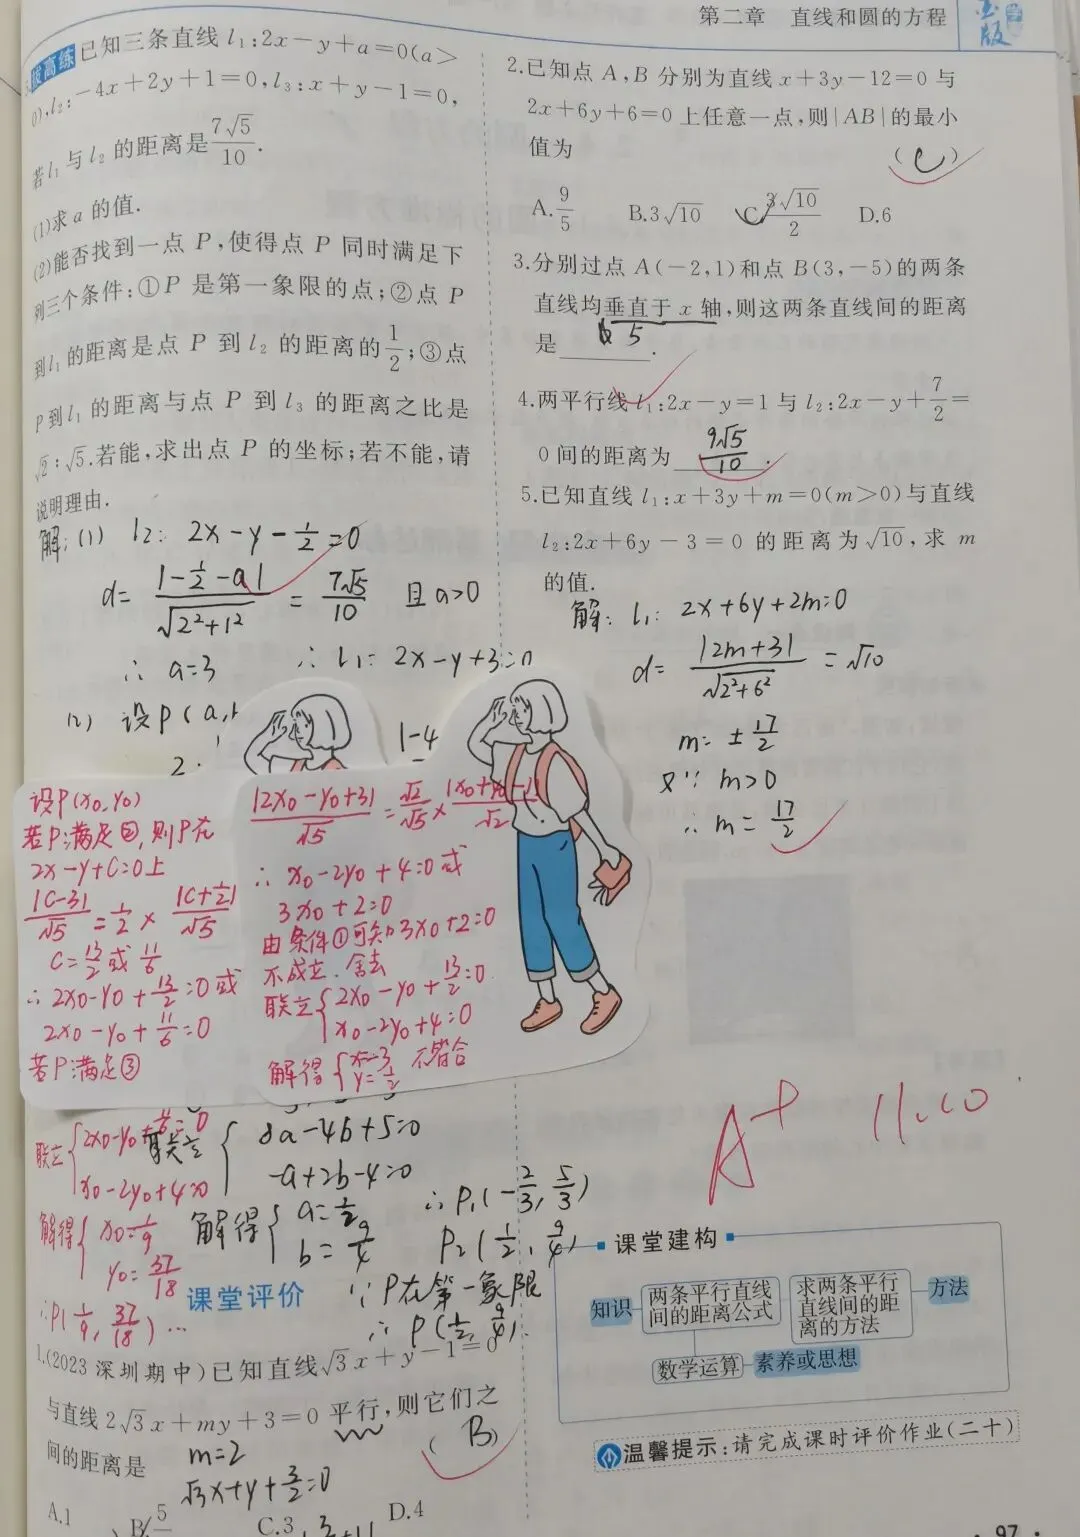 第二章 直线和圆的方程
金版
拔高练 已知三条直线 l₁:2x-y+a=0(a>
0),l₂:-4x+2y+1=0,l₃:x+y-1=0,
若l₁与l₂的距离是7√5/10.
(1)求a的值.
(2)能否找到一点P,使得点P同时满足下
列三个条件:①P是第一象限的点;②点P
到l₁的距离是点P到l₂的距离的1/2;③点
P到l₁的距离与点P到l₃的距离之比是
√2:√5.若能,求出点P的坐标;若不能,请
说明理由.
解:(1) l₂: 2x-y-1/2=0
d= |-1/2-a|/√(2²+1²) = 7√5/10 且a>0
∴ a=3 ∴ l₁: 2x-y+3=0
(2) 设P(a,
2.
|-4
设P(x₀,y₀)
若P满足②,则P在
2x-y+C=0上
|C-3|/√5=1/2×|C+1/2|/√5
C=13/2或11/6
∴2x₀-y₀+13/2=0或
2x₀-y₀+11/6=0
若P满足③
|2x₀-y₀+3|/√5=√2/√5×|x₀+y₀-1|/√2
∴x₀-2y₀+4=0或
3x₀+2=0
由条件①可知3x₀+2=0
不成立.舍去
联立{2x₀-y₀+13/2=0
x₀-2y₀+4=0
解得{x=-3
y=1/2 不符合
联立{2x₀-y₀+11/6=0
x₀-2y₀+4=0
解得{x₀=1/9
y₀=37/18
∴P(1/9,37/18)...
联立{8a-4b+5=0
-a+2b-4=0
解得{a=1/2
b=9/4
∴P₁(-2/3,5/3)
P₂(1/2,9/4)
∵P在第一象限
∴P(1/2,9/4).
课堂评价
1.(2023深圳期中)已知直线√3x+y-1=0
与直线2√3x+my+3=0平行,则它们之
间的距离是
(B)
m=2
√3x+y+3/2=0
A.1
B.5
C.3
D.4
2.已知点A,B分别为直线x+3y-12=0与
2x+6y+6=0上任意一点,则|AB|的最小
值为
(C)
A.9/5 B.3√10 C.3√10/2 D.6
3.分别过点A(-2,1)和点B(3,-5)的两条
直线均垂直于x轴,则这两条直线间的距离
是 5 .
4.两平行线l₁:2x-y=1与l₂:2x-y+7/2=
0间的距离为 9√5/10 .
5.已知直线l₁:x+3y+m=0(m>0)与直线
l₂:2x+6y-3=0的距离为√10,求m
的值.
解: l₁: 2x+6y+2m=0
d= |2m+3|/√(2²+6²) =√10
m=±17/2
又∵ m>0
∴ m=17/2
A+ 11.10
课堂建构
知识
两条平行直线
间的距离公式
求两条平行
直线间的距
离的方法
方法
数学运算
素养或思想
温馨提示:请完成课时评价作业(二十)
·97·